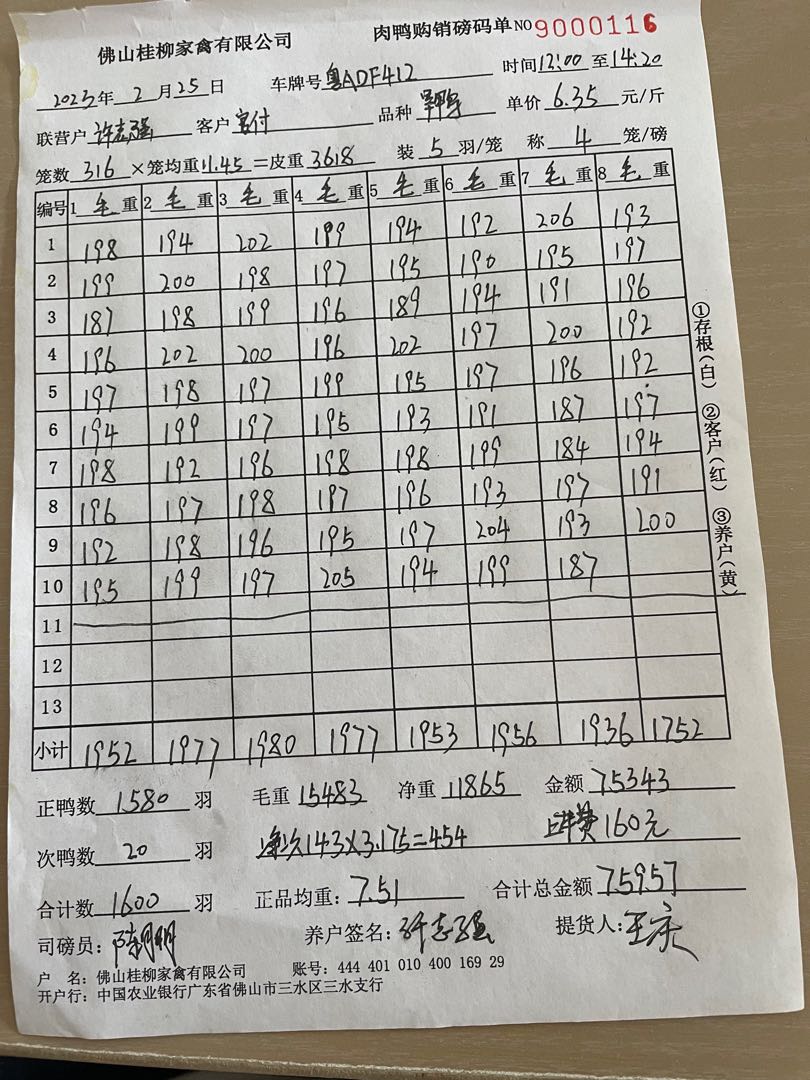 佛山桂柳家禽有限公司 肉鸭购销磅码单 NO 9000116
2023年 2 月 25 日 车牌号 粤ADF412 时间 13:00 至 14:20
联营户 许志强 客户 品种 单价 6.35 元/斤
笼数 316 ×笼均重 11.45 =皮重 3618 装 5 羽/笼 称 4 笼/磅
编号 1 毛 重 2 毛 重 3 毛 重 4 毛 重 5 毛 重 6 毛 重 7 毛 重 8 毛 重
1 198 194 202 199 194 192 206 193
2 199 200 198 197 195 190 195 197
3 187 198 199 196 189 194 191 196
4 196 202 200 196 202 197 200 192
5 197 198 197 199 195 197 196 192
6 194 199 197 195 193 191 187 197
7 198 192 196 198 198 199 184 194
8 196 197 198 197 196 193 197 191
9 192 198 196 195 197 204 193 200
10 195 199 197 205 194 199 187
11
12
13
小计 1952 1977 1980 1977 1953 1956 1936 1752
正鸭数 1580 羽 毛重 15483 净重 11865 金额 75343
次鸭数 20 羽 143×3.175=454 费160元
合计数 1600 羽 正品均重: 7.51 合计总金额 75957
司磅员: 养户签名: 许志强 提货人: 王庆
户 名: 佛山桂柳家禽有限公司 账号: 444 401 010 400 169 29
开户行: 中国农业银行广东省佛山市三水区三水支行
①存根(白) ②客户(红) ③养户(黄)